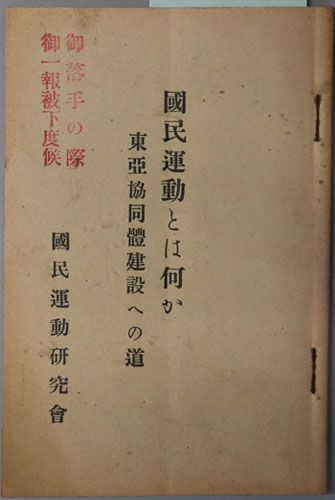 國民運動とは何か
東亞協同體建設への道
國民運動研究會
御落手の際
御一報被下度候